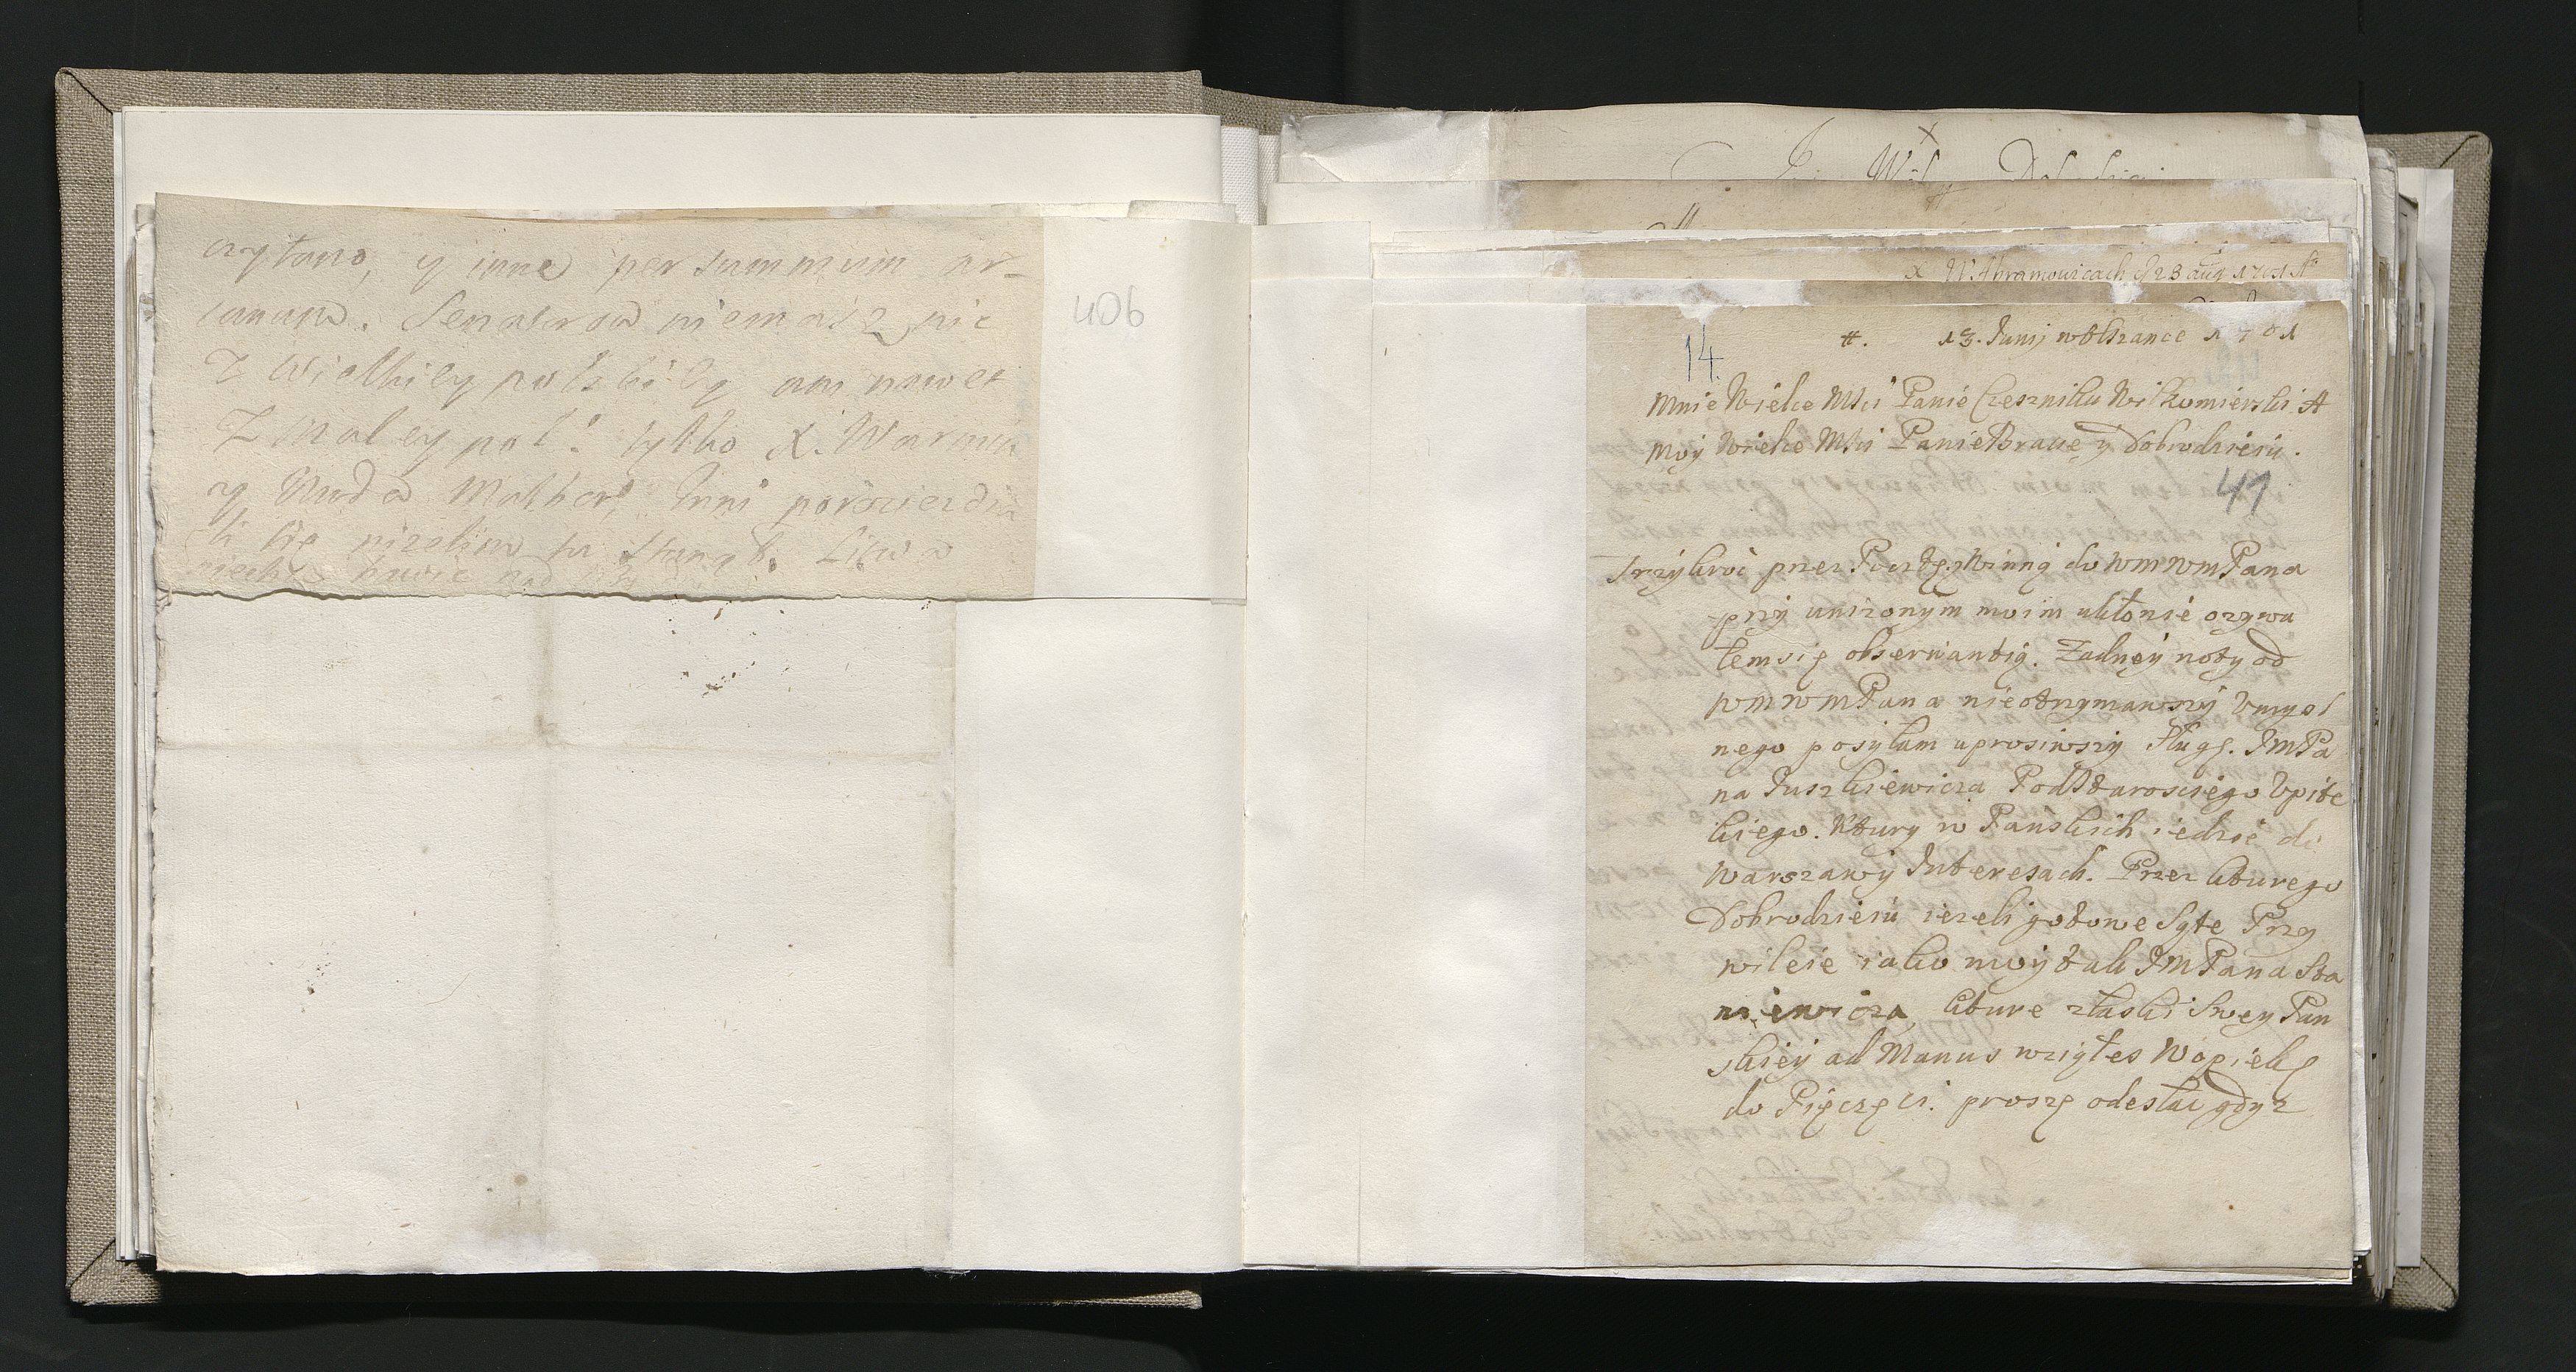 czytano, y inne per summum ar-
canum. Senatorow niemasz nic
Z Wielkiey polskiey ani nawet
Z Maley pol: tylko X. Warmin
y Wwda Malbor, Inni porozierdza
li się nizelim tu stanął. Litwa
406
W Abramowicach d 28 aug 1701
14
#. 13. Junij w Olszance 1701
Mnie Wielce Mści Panie Czeszniku Wiłkomierski A
Moy Wielce Mści Panie Bracie y Dobrodzieiu.
41
Trzykroć przez Pocztę Winną do WMWMPana
przy unizonym moim ukłonie ozywa
łem się obserwantią. Zadney noty od
WMWMPana nieotrzymawszy Vmysl
nego posyłam uprosiwszy sługę. JMPa
na Juszkiewicza PodStarosciego Vpite
kiego. Ktury w Pańskich iedzie do
Warszawy Interesach. Przez kturego
Dobrodzieiu iezeli gotowe Są te Przy
wileie iako moy tak JMPana Sta
niewicza, kture złaski Swey Pan
skiey ad Manus wziąłes W opiekę
do Pięczęci. proszę odesłac gdyz